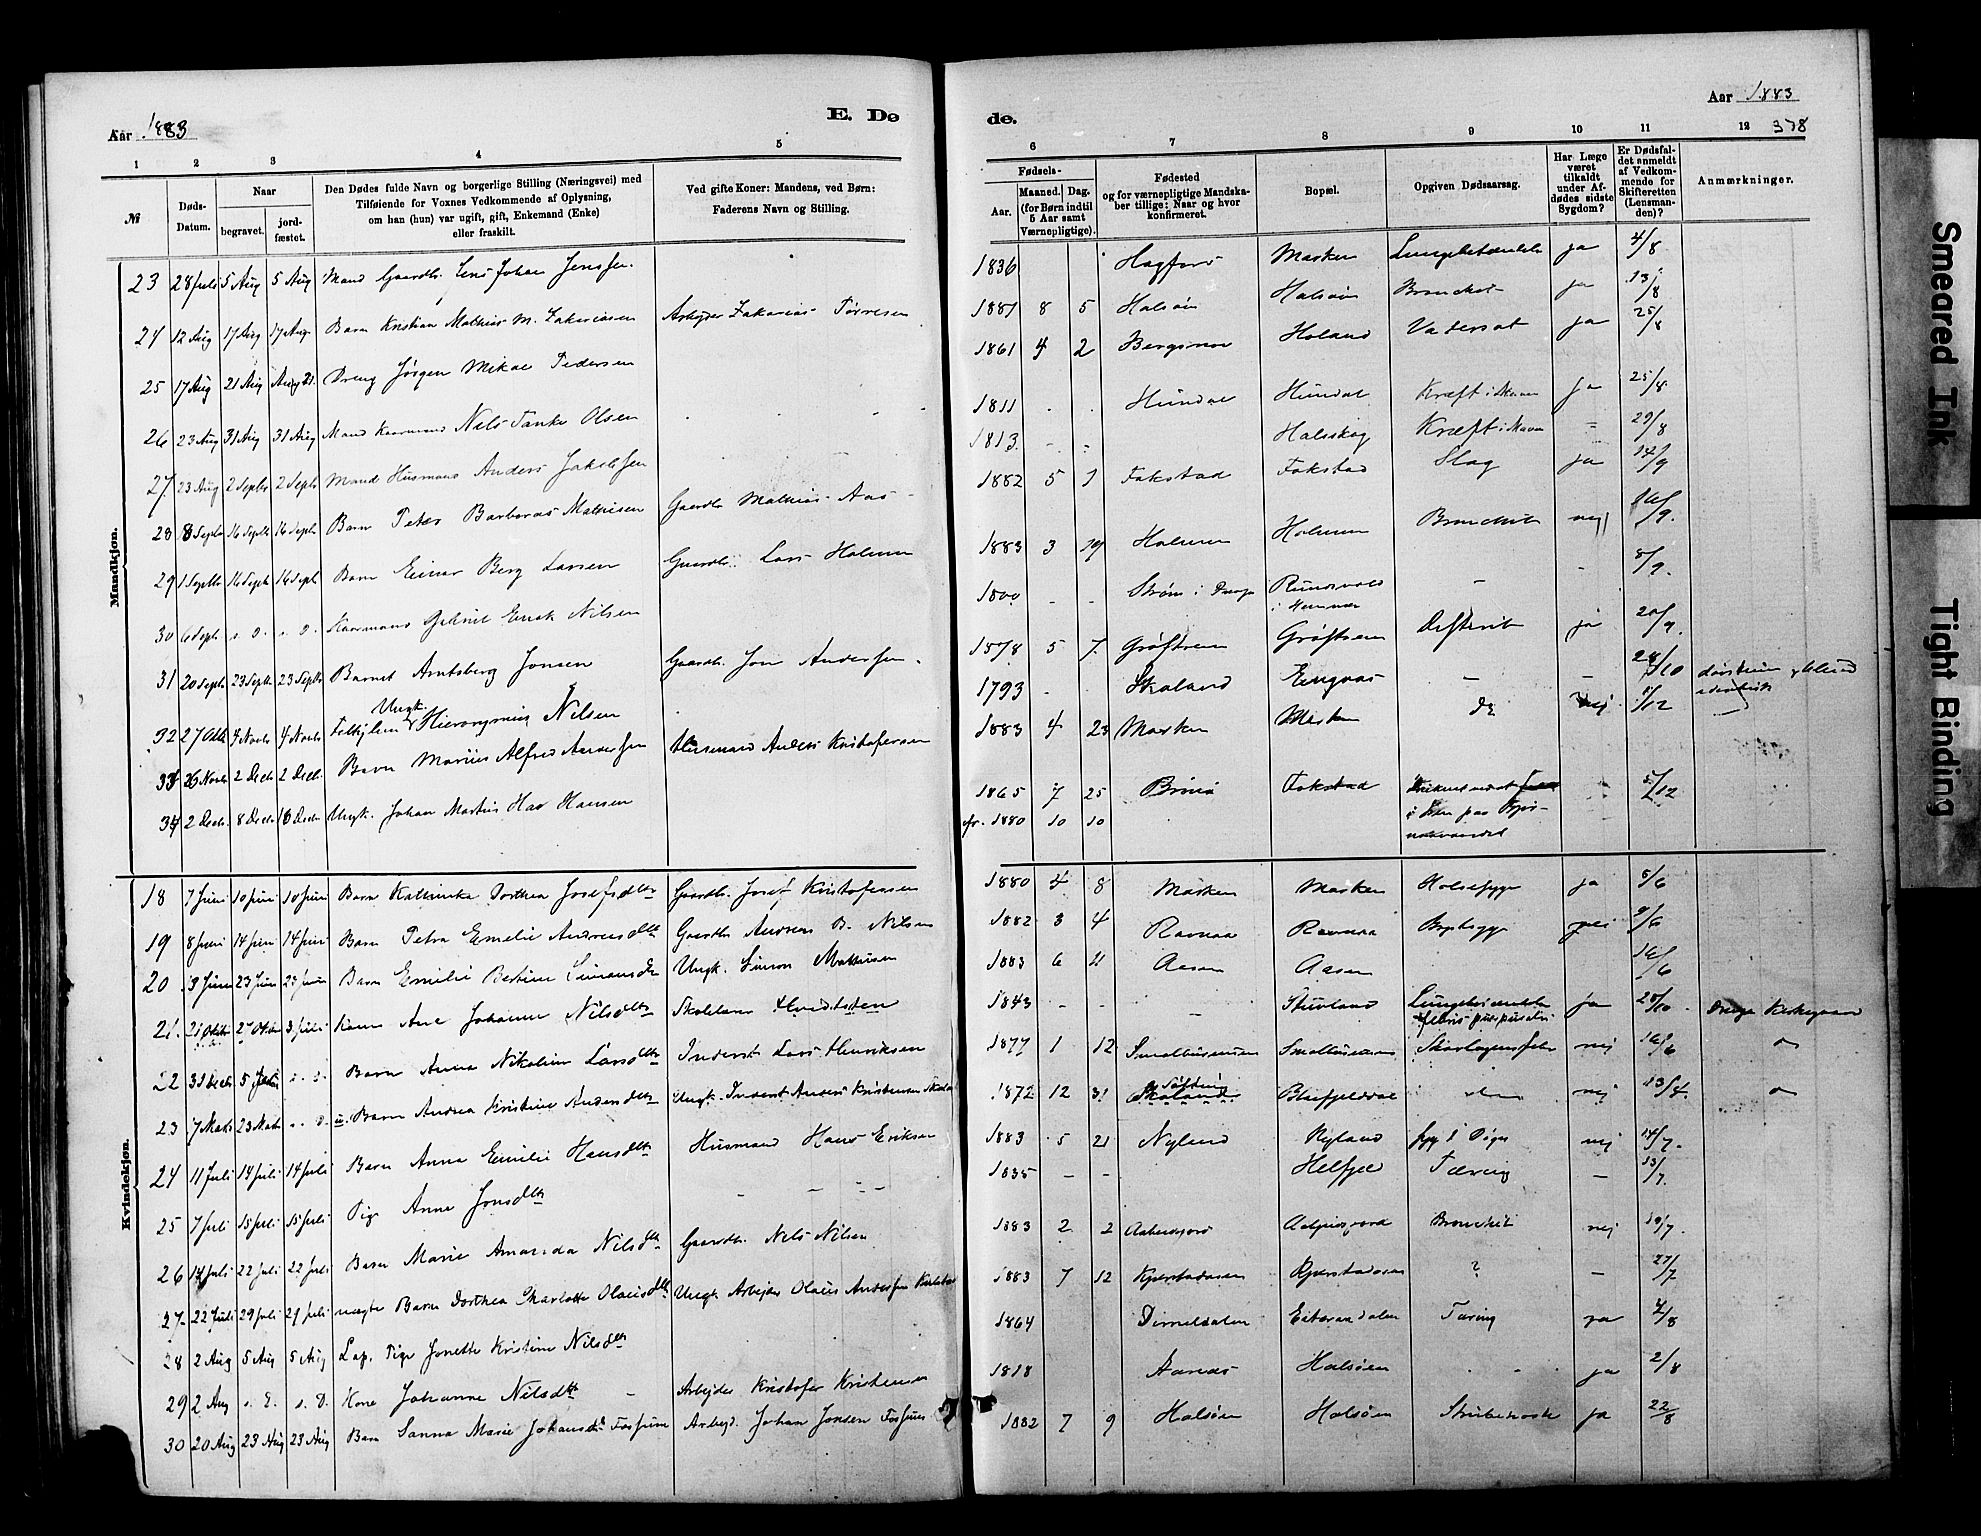 Aar 1883
E. Dø
1 2 3 4 5
№
Døds-Datum.
Naar
begravet.
jord-fæstet.
Den Dødes fulde Navn og borgerlige Stilling (Næringsvei) med
Tilføiende for Voxnes Vedkommende af Oplysning,
om han (hun) var ugift, gift, Enkemand (Enke)
eller fraskilt.
Ved gifte Koner: Mandens, ved Børn:
Faderens Navn og Stilling.
Mandkjøn.
23 28 Juli 5 Aug 5 Aug Mand Gaardbr. Jens Johan Jenssen
24 12 Aug 17 Aug 17 Aug Barn Kristian Mathias M. Zakariasen Arbejder Zakarias Tørresen
25 17 Aug 21 Aug Aug 21. Dreng Jørgen Mikal Pedersen
26 23 Aug 31 Aug 31 Aug Mand Kaarmand Nils Tanke Olsen
27 23 Aug 2 Septb 2 Septb Mand Husmand Anders Jakobsen
28 8 Septb 16 Septb 16 Septb Barn Peter Barboras Mathisen Gaardbr Mathias Aas
29 1 Septb 16 Septb 16 Septb Barn Einar Berg Larsen Gaardbr. Lars Holmen
30 6 Septb s. D. s. D. Kaarmand Gabriel Erik Nilsen
31 20 Septb 23 Septb 23 Septb Barnet Arntsberg Jonsen Gaardb. Jon Andersen
32 27 Oktb 4 Novbr 4 Novbr Ungk. Hieronymus Nilsen
33 26 Novbr 2 Decb 2 Decb. Barn Marius Alfred Andersen Husmand Anders Kristofersen
34 2 Decb. 8 Decb 16 Decb Ungk. Johan Martius Hav Hansen
Kvindekjøn.
18 7 Juni 10 Juni 10 Juni Barn Kathinka Dorthea Josefsdtr Gaardb. Josef Kristofersen
19 8 Juni 14 Juni 14 Juni Barn Petra Emelie Andreasdtr Gaardb Andreas B. Nilsen
20 9 Juni 23 Juni 23 Juni Barn Emilie Bertine Simonsdtr Ungk. Simon Mathisen
21. 21 Oktbr 27 Oktbr 3 Juli Kone Ane Johanne Nilsdtr Skolelærer Hvedsten
22 31 Decb. 5 s. D. Barn Anna Nikoline Larsdtr Inderst Lars Henriksen
23 7 Mars 23 Mars s. D. u. Barn Andrea Kristine Andersdtr Ungk. Inderst Anders Kristensen
24 11 Juli 14 Juli 14 Juli Barn Anna Emilie Hansdtr Husmand Hans Eriksen
25 7 Juli 15 Juli 15 Juli Pige Anne Jonsdtr
26 14 Juli 22 Juli 22 Juli Barn Marie Amanda Nilsdtr Gaardb. Nils Nilsen
27 22 Juli 29 Juli 29 Juli uægte Barn Dorthea Charlotte Olausdtr Ungk. Arbejder Olaus Andersen
28 2 Aug 5 Aug 5 Aug Lap. Pige Jonette Kristine Nilsdtr
29 2 Aug s. D. s. D. Kone Johanne Nilsdtr Arbejder Kristofer Kristensen
30 20 Aug 23 Aug 23 Aug Barn Sanna Marie Johansdtr Fosjum Arbejd. Johan Jonsen Fosjum
de.
Aar 1883
6 7 8 9 10 11 12 378
Fødsels-
Aar.
Maaned. Dag.
(for Børn indtil
5 Aar samt
Værnepligtige).
Fødested
og for værnepligtige Mandska-
ber tillige: Naar og hvor
konfirmeret.
Bopæl.
Opgiven Dødsaarsag.
Har Læge
været
tilkaldt
under Af-
dødes sidste
Sygdom?
Er Dødsfal-
det anmeldt
af Vedkom-
mende for
Skifteretten
(Lensman-
den)?
Anmærkninger.
1836 Hagfors Marken Lungebetændelse ja 4/8
1881 8 5 Halsøen Halsøen Bronchit ja 13/8
1861 4 2 Bergsnov Holand Vatersot ja 25/8
1811 Hundal Hundal Kræft i Maven ja 25/8
1813 Halsskog Kræft i Maven 29/8
1882 5 1 Fokstad Fokstad Slag ja 14/9
1883 3 19 Holmen Holmen Bronchit nej 16/9.
1800 Strøm i 8/9.
1878 5 7 Grøftrem Grøftrem Difterit ja 20/9.
1793 Skaland Engaas 28/10
1883 4 23 Marken Marken do nej 1/12
1865 7 25 Brinø Fokstad 5/12
fr. 1880 10 10
1880 4 8 Marken Marken Halssyge ja 8/6
1882 3 4 Ravnaa Ravnaa Brystsyge nei 9/6
1883 6 21 Aasen Aasen 16/6
1843 Stuvland Lungebetændelse ja 28/10 Kirkegaard
1877 1 12 Smalhusmoen Smalhusmoen Skarlagensfeber nej 16/6
1872 12 31 Skaland Blaafjeldal nej 13/4
1883 5 21 Nyland Nyland syg 2 Døgn nej 14/7
1835 Helfjel Tæring 13/7
1883 2 2 Bronchit nej 19/7
1883 7 12 Kjerstadaasen Kjerstadaasen ? 27/7
1864 Dirmeldalen Eiteraadalen Tæring ja 4/8
1818 Aanes Halsøen ja 2/8
1882 7 9 Halsøen Halsøen Strubehoste ja 22/8
Smeared Ink
Tight Binding